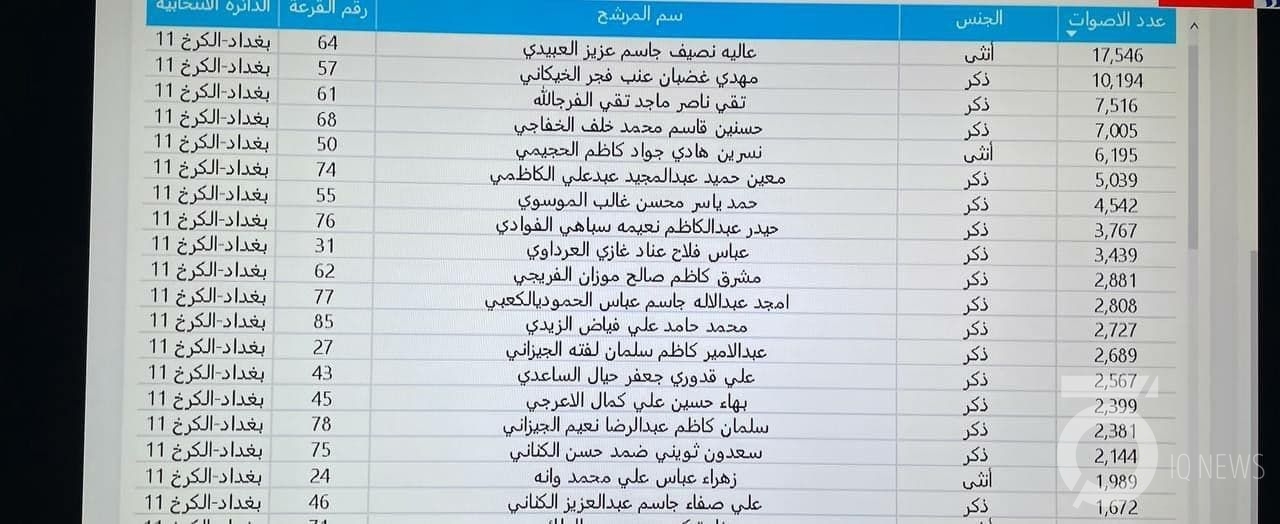 عدد الاصوات الجنس سم المرشح رقم القرعة الدائرة الانتخابية
17,546 أنثى عاليه نصيف جاسم عزيز العبيدي 64 بغداد-الكرخ 11
10,194 ذكر مهدي غضبان عنب فجر الخيكاني 57 بغداد-الكرخ 11
7,516 ذكر تقي ناصر ماجد تقي الفرجالله 61 بغداد-الكرخ 11
7,005 ذكر حسنين قاسم محمد خلف الخفاجي 68 بغداد-الكرخ 11
6,195 أنثى نسرين هادي جواد كاظم الحجيمي 50 بغداد-الكرخ 11
5,039 ذكر معين حميد عبدالمجيد عبدعلي الكاظمي 74 بغداد-الكرخ 11
4,542 ذكر حمد ياسر محسن غالب الموسوي 55 بغداد-الكرخ 11
3,767 ذكر حيدر عبدالكاظم نعيمه سباهي الفوادي 76 بغداد-الكرخ 11
3,439 ذكر عباس فلاح عناد غازي العرداوي 31 بغداد-الكرخ 11
2,881 ذكر مشرق كاظم صالح موزان الفريجي 62 بغداد-الكرخ 11
2,808 ذكر امجد عبدالاله جاسم عباس الحموديالكعبي 77 بغداد-الكرخ 11
2,727 ذكر محمد حامد علي فياض الزيدي 85 بغداد-الكرخ 11
2,689 ذكر عبدالامير كاظم سلمان لفته الجيزاني 27 بغداد-الكرخ 11
2,567 ذكر علي قدوري جعفر حيال الساعدي 43 بغداد-الكرخ 11
2,399 ذكر بهاء حسين علي كمال الاعرجي 45 بغداد-الكرخ 11
2,381 ذكر سلمان كاظم عبدالرضا نعيم الجيزاني 78 بغداد-الكرخ 11
2,144 ذكر سعدون ثويني ضمد حسن الكناني 75 بغداد-الكرخ 11
1,989 أنثى زهراء عباس علي محمد وانه 24 بغداد-الكرخ 11
1,672 ذكر علي صفاء جاسم عبدالعزيز الكناني 46 بغداد-الكرخ 11
IQ NEWS